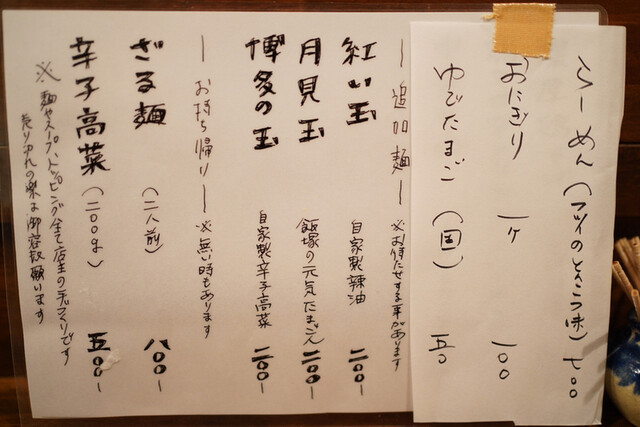 らーめん（アツイのとんこつ味）七〇〇
おにぎり 一ケ 一〇〇
ゆでたまご（固） 五〇
― 追加麺 ― ※お待たせする事があります
紅い玉 自家製辣油 二〇〇―
月見玉 飯塚の元気たまごん 二〇〇―
博多の玉 自家製辛子高菜 二〇〇―
― お持ち帰り ― ※無い時もあります
ざる麺 （二人前） 八〇〇―
辛子高菜 （二〇〇g） 五〇〇―
※麺やスープ、トッピング全て店主の手づくりです
売り切れの際は御容赦願います